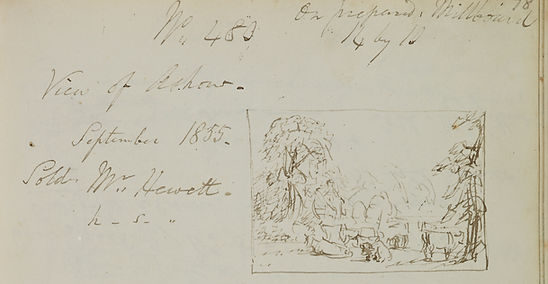 18
No. 483 On prepared Millboard
14 by 10
View of Ashow.
September 1855.
Sold. Mr. Hewett.
h - s - "